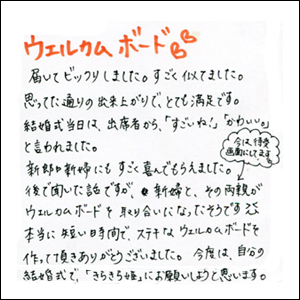 ウェルカム ボード
届いてビックリしました。すごく似てました。
思ってた通りの出来上がりで、とても満足です。
結婚式当日は、出席者から、「すごいね!」「かわいい。」
と言われました。
今は、待受
画面にしてます
新郎新婦にもすごく喜んでもらえました。
後で聞いた話ですが、新婦と、その両親が
ウェルカムボードを取り合いになったそうです
本当に短い時間で、ステキなウェルカムボードを
作って頂きありがとうございました。今度は、自分の
結婚式で、「きらきら姫」にお願いしようと思います。